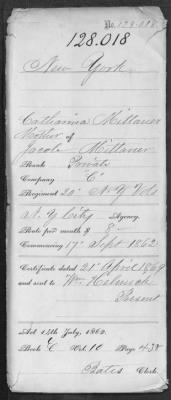 No. 128.018
128.018
New York
Catharina Mittauer
Mother of
Jacob Mittauer
Rank Private
Company "C"
Regiment 20" N.Y. Vols
N.Y. City Agency.
Rate per month $ 8 -
Commencing 17" Sept 1862
Certificate dated 21" April 1869
and sent to Wm.
Present
Act 14th July, 1862.
Book C Vol. 10 Page 438
Bates Clerk.